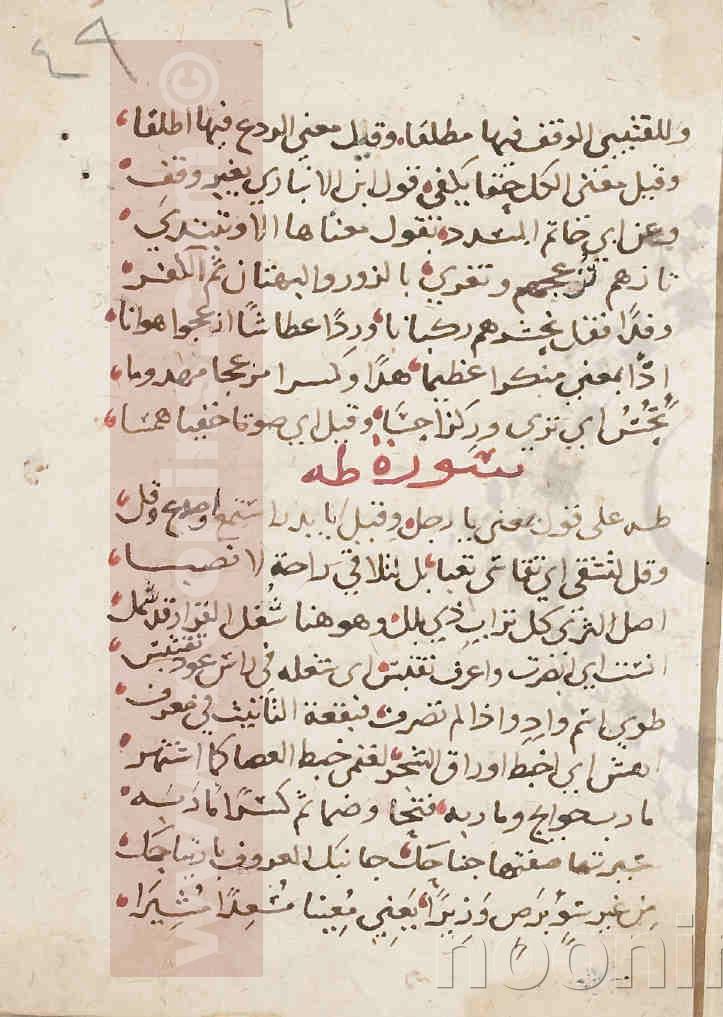 وللقتيبي الوقف فيها مطلقا وقيل معنى الردع فيها اطلقا
وقيل معنى الكل حقا يكفي قول ابن الانباري بغير وقف
وعن ابي حاتم المسدد تقول معناها الا وتبتدي
تازهم تزعجهم وتغري بالزور والبهتان ثم الكفر
وفدا فقل نحشرهم ركبانا وردا عطاشا ازعجوا هوانا
ادا بمعنى منكرا عظيما هدا و مزعجا مهدوما
تحس اي ترى وركزا حسا وقيل اي صوتا خفيا همسا
سورة طه
طه على قول بمعنى يا رجل وقيل يا بدر استمع وقل
وقل لتشقى اي تقاسي تعبا بل لتلاقي راحة لا نصبا
اصل الثرى كل تراب ذي بلل وهو هنا سفل القرار قد شمل
انست اي ابصرت واعرف بقبس اي شعلة في راس عود تقتبس
طوى اسم واد واذا لم تصرف فبقعة التانيث في معرف
اهش اي اخبط اوراق الشجر لغنمي خبط العصا كما اشتهر
مارب حوايج وماربه فتحا وضما ثم كسرا ماربه
سيرتها صفتها جناحك جانبك المعروف يا
من غير سوء برص وزيرا يعني معينا مسعدا مشيرا